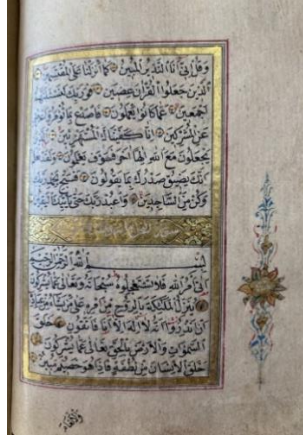 وقل اني انا النذير المبين كما انزلنا على المقتسمين
الذين جعلوا القران عضين فوربك لنسئلنهم
اجمعين عما كانوا يعملون فاصدع بما تؤمر واعرض
عن المشركين انا كفيناك المستهزئين الذين
يجعلون مع الله الها اخر فسوف يعلمون ولقد نعلم
انك يضيق صدرك بما يقولون فسبح بحمد ربك
وكن من الساجدين واعبد ربك حتى ياتيك اليقين
سورة النحل
بسم الله الرحمن الرحيم
اتى امر الله فلا تستعجلوه سبحانه وتعالى عما يشركون
ينزل الملئكة بالروح من امره على من يشاء من عباده
ان انذروا انه لا اله الا انا فاتقون خلق
السموات والارض بالحق تعالى عما يشركون
خلق الانسان من نطفة فاذا هو خصيم مبين
والانعام